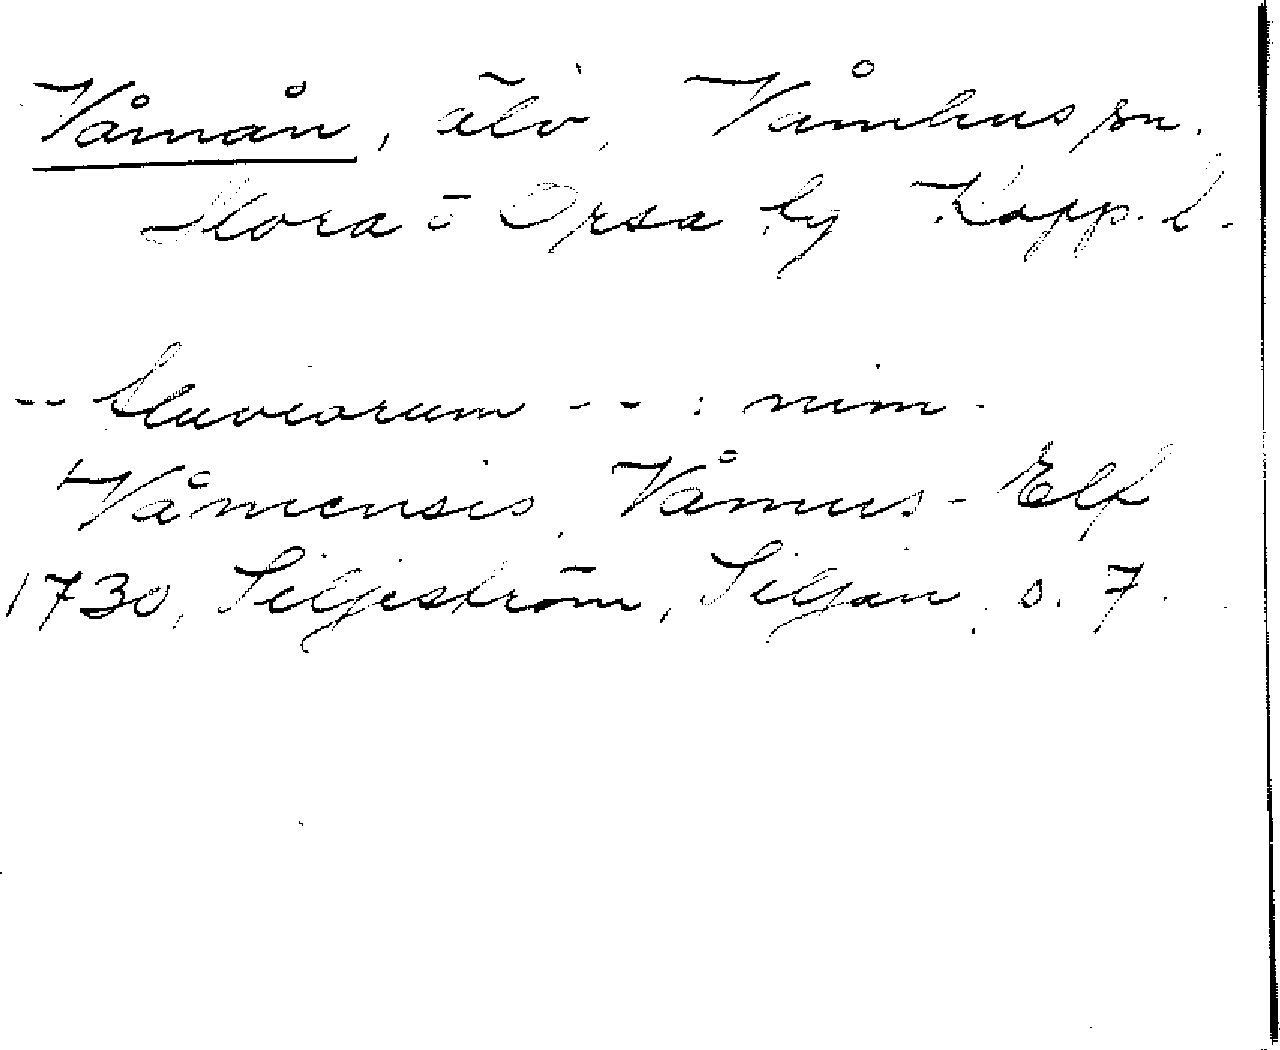 Våmån, älv, Våmhus sn.
Mora o Orsa hg Kopp. l.
-- fluviorum -- : nim.
Våmensis, Våmus-Elf
1730, Siljeström, Siljan, s. 7.